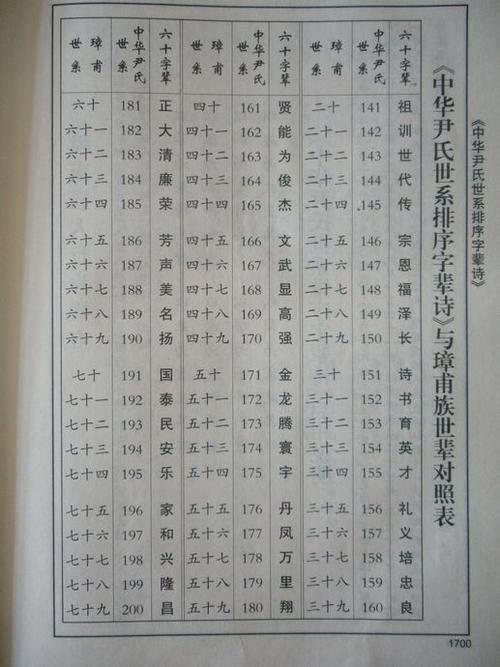 《中华尹氏世系排序字辈诗》
《中华尹氏世系排序字辈诗》与璋甫族世辈对照表
璋甫世系 中华尹氏世系 六十字辈 璋甫世系 中华尹氏世系 六十字辈 璋甫世系 中华尹氏世系 六十字辈
六十 181 正 四十 161 贤 二十 141 祖
六十一 182 大 四十一 162 能 二十一 142 训
六十二 183 清 四十二 163 为 二十二 143 世
六十三 184 廉 四十三 164 俊 二十三 144 代
六十四 185 荣 四十四 165 杰 二十四 145 传
六十五 186 芳 四十五 166 文 二十五 146 宗
六十六 187 声 四十六 167 武 二十六 147 恩
六十七 188 美 四十七 168 显 二十七 148 福
六十八 189 名 四十八 169 高 二十八 149 泽
六十九 190 扬 四十九 170 强 二十九 150 长
七十 191 国 五十 171 金 三十 151 诗
七十一 192 泰 五十一 172 龙 三十一 152 书
七十二 193 民 五十二 173 腾 三十二 153 育
七十三 194 安 五十三 174 寰 三十三 154 英
七十四 195 乐 五十四 175 宇 三十四 155 才
七十五 196 家 五十五 176 丹 三十五 156 礼
七十六 197 和 五十六 177 凤 三十六 157 义
七十七 198 兴 五十七 178 万 三十七 158 培
七十八 199 隆 五十八 179 里 三十八 159 忠
七十九 200 昌 五十九 180 翔 三十九 160 良
1700